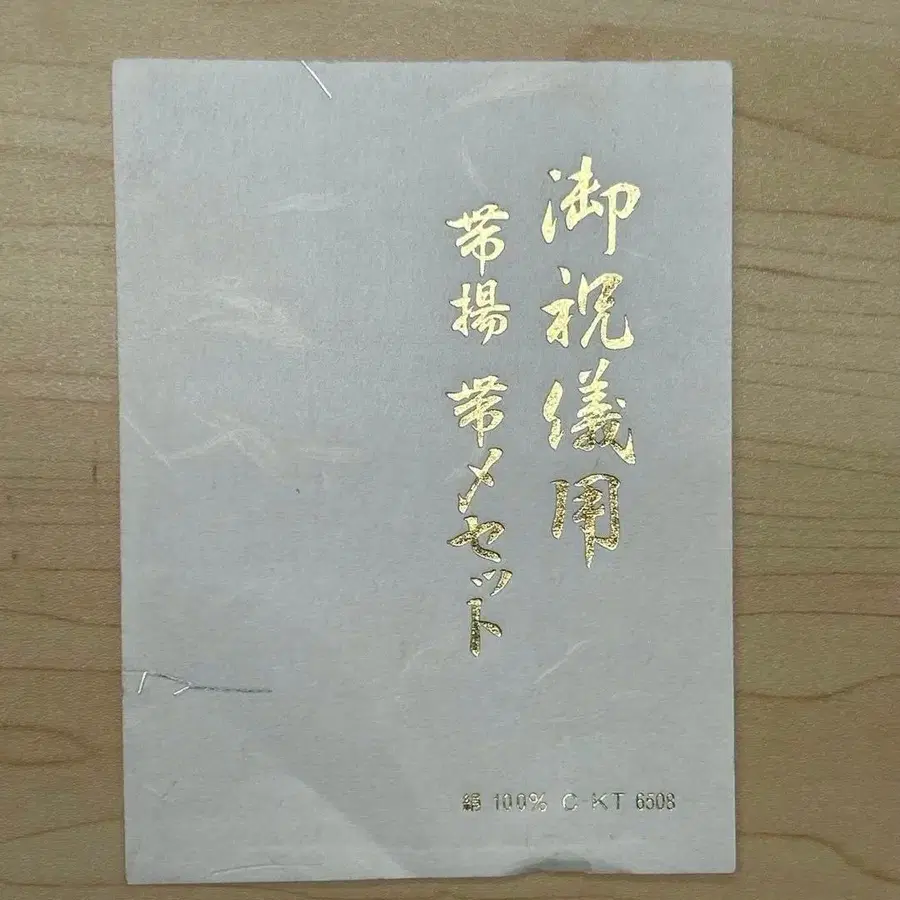 御祝儀用
帯揚 帯〆セット
絹 100% C-KT 6508